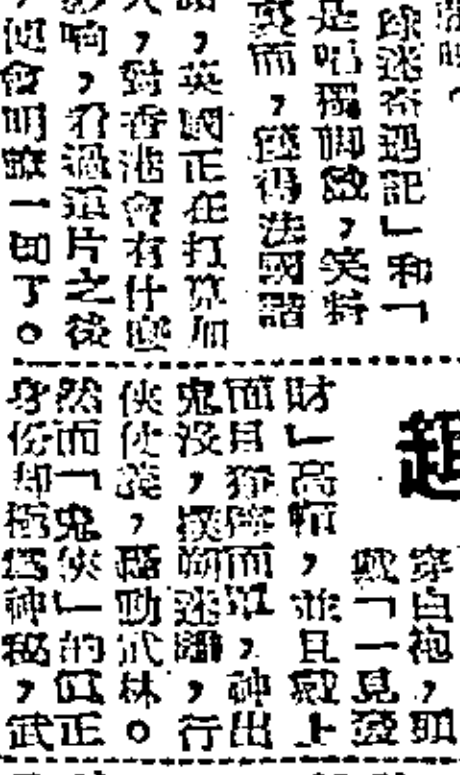 球迷奇遇記」和「
是唱獨脚戲,笑料
眞而,獲得法國諧
英國正在打算加
,對香港會有什麽
影响,看過這片之後
,便會明瞭一切了。
穿白袍,頭
戴「一見發
財」高帽,並且戴上
面具,
鬼沒,撲朔迷離,行
俠仗義,轟動武林。
然而「鬼俠」的眞正
身份却極爲神秘,武